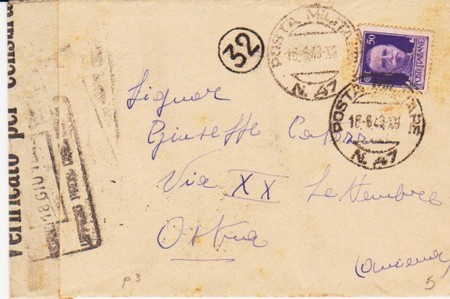 Verificato per censura
32
POSTA MILITARE
16-6.43-XXI
N. 47
50
POSTE ITALIANE
POSTA MILITARE
16-6.43-XXI
N. 47
Signor
Giuseppe
Via XX Settembre
Ostra
(Ancona)
p 3
5